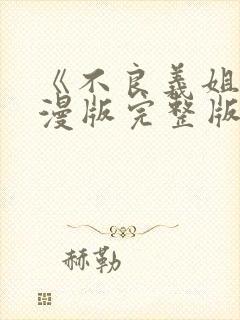 《不良义姐
漫版完整版
赫勒